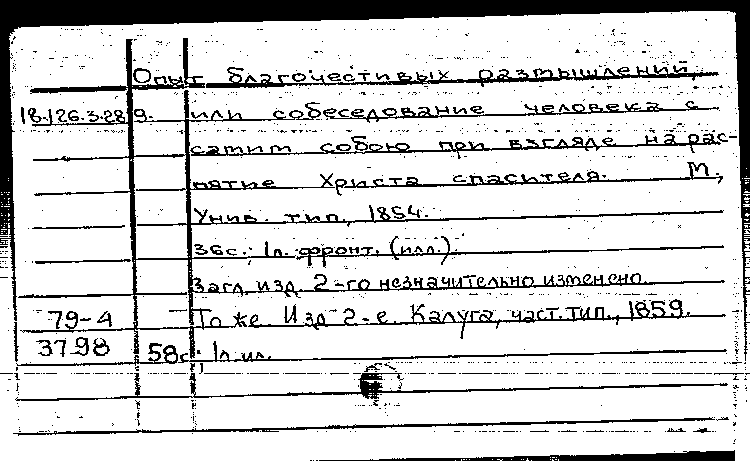 Опыт благочестивых размышлений,
18.126.3.289. или собеседование человека с
самим собою при взгляде на рас-
пятие Христа спасителя. М.,
Унив. тип., 1854.
36с.; 1л. фронт. (илл.).
Загл. изд. 2-го незначительно изменено.
79-4 То же. Изд 2-е. Калуга, част. тип., 1859.
3798 58с.; 1л. ил.